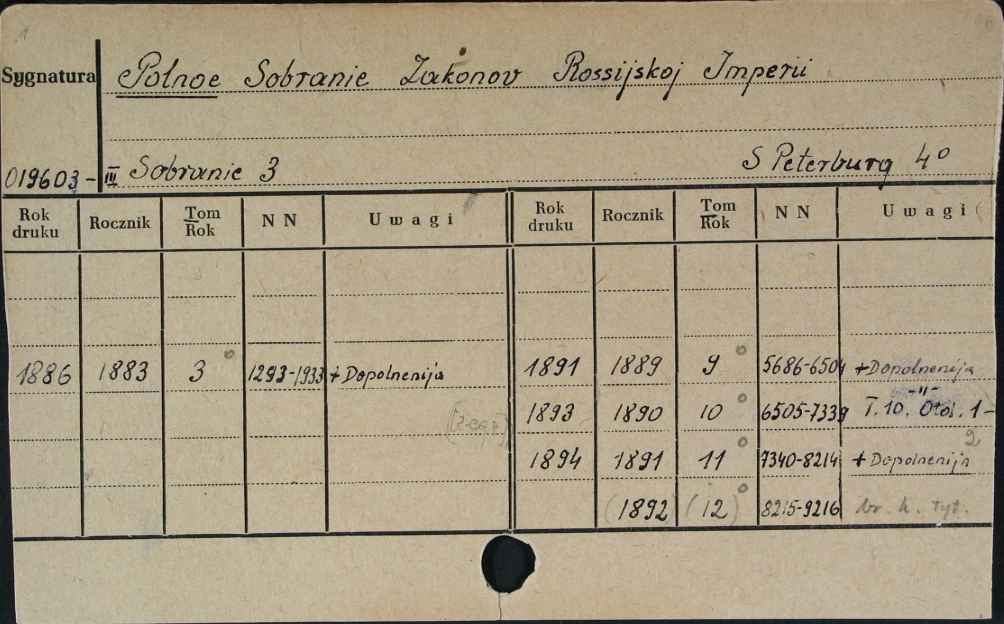 Sygnatura
Polnoe Sobranie Zakonov Rossijskoj Imperii
019603 - III Sobranie 3 S Peterburg 4º
Rok druku Rocznik Tom Rok NN Uwagi Rok druku Rocznik Tom Rok NN Uwagi
1886 1883 3 º 1293-1933 + Dopolnenija 1891 1889 9 º 5686-6504 + Dopolnenija
1893 1890 10 º 6505-7339 -"- T. 10. Otd. 1-2
1894 1891 11 º 7340-8214 + Dopolnenija
(1892) (12) º 8215-9216 br. k. tyt.